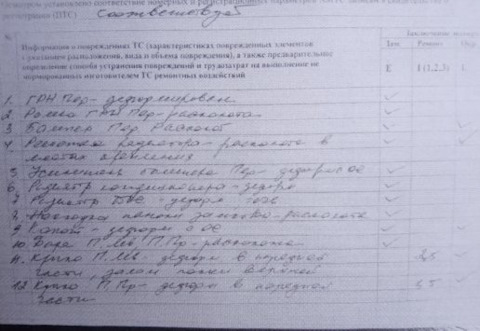 осмотром установлено соответствие номерных и регистрационных параметров
регистрации (ПТС) Соответствует
№
Информация о повреждениях ТС (характеристиках поврежденных элементов
с указанием расположения, вида и объема повреждения), а также предварительное
определение способа устранения повреждений и трудозатрат на выполнение не
нормированных изготовителем ТС ремонтных воздействий
Зам. Ремонт
E I (1,2,3) L
1. ГРН Пер - деформирован
2. Рамка ГРН Пер - расколота
3. Бампер Пер Расколот
4. Решетка радиатора - расколота в
местах крепления
5. Усилитель бампера Пер - деформ
6. Радиатр кондиционера - деформ
7. Радиатр ДВС - деформ
8. Накладка панели замка - расколота
9. Капот - деформ
10. Фара П. Лев, П. Пр - расколоты
11. Крыло П. Лев - деформ в передней
части, залом верхней
12. Крыло П. Пр - деформ в передней
части